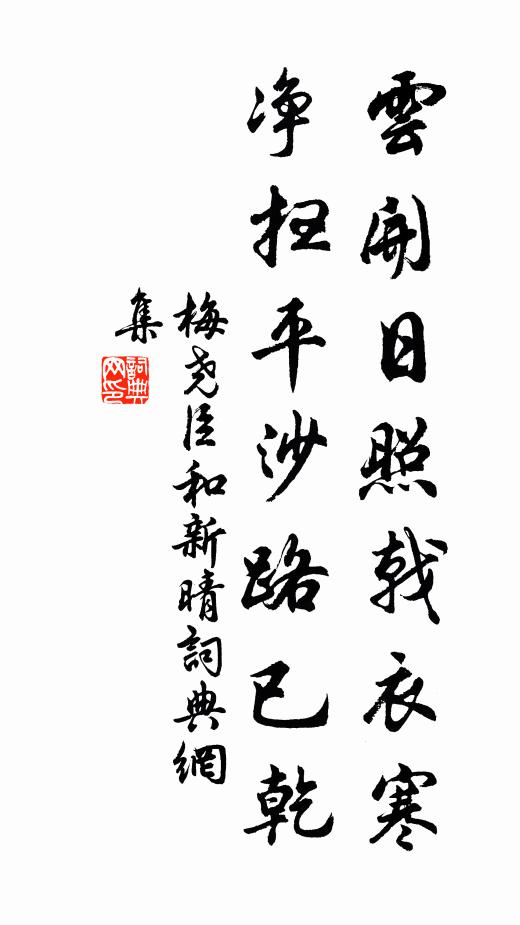 雲開日照戟衣寒
净扫平沙路已乾
梅尧臣和新晴詞典網
集
詞典
网印